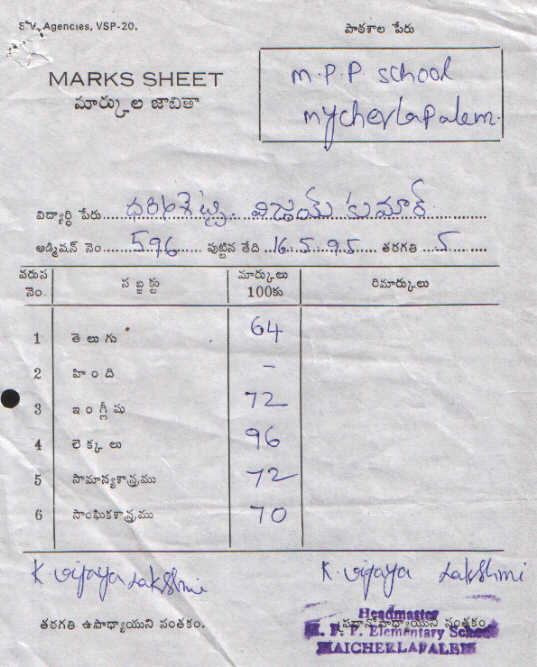 Agencies, VSP-20.
పాఠశాల పేరు
MARKS SHEET
మార్కుల జాబితా
M.P.P school
Mycherlapalem.
విద్యార్థి పేరు విజయ్ కుమార్
అడ్మిషన్ నెం 596 పుట్టిన తేది 16.5.95 తరగతి 5
వరుస నెం. సబ్జక్టు మార్కులు 100కు రిమార్కులు
1 తెలుగు 64
2 హింది -
3 ఇంగ్లీషు 72
4 లెక్కలు 96
5 సామాన్యశాస్త్రము 72
6 సాంఘికశాస్త్రము 70
K vijaya Lakshmi K. vijaya Lakshmi
తరగతి ఉపాధ్యాయుని సంతకం. ప్రధానోపాధ్యాయుని సంతకం.
Headmaster
M. P. P. Elementary School
MAICHERLAPALEM